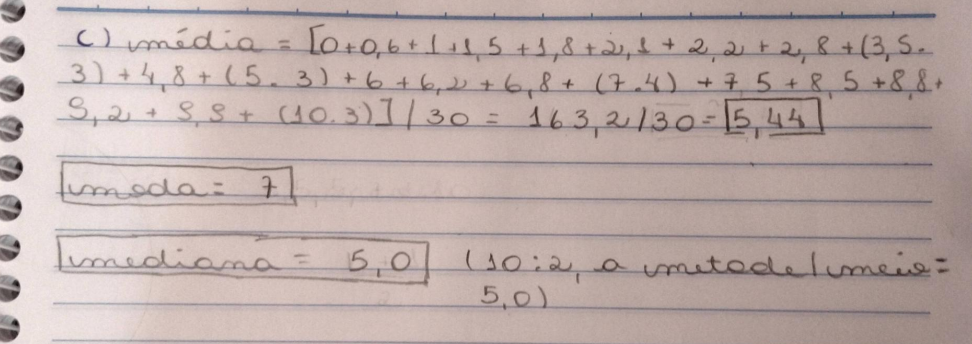 c) média = [0+0,6+1+1,5+1,8+2,1+2,2+2,8+(3,5.
3)+4,8+(5.3)+6+6,2+6,8+(7.4)+7,5+8,5+8,8+
9,2+9,9+(10.3)]/30 = 163,2/30=5,44
moda= 7
mediana = 5,0 (10:2, a metade/meio=
5,0)